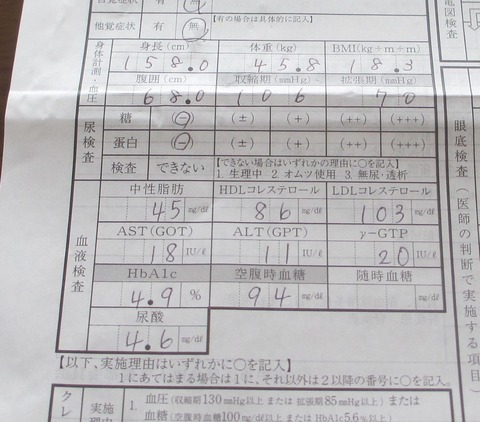 自覚症状 有 無
他覚症状 有 無 【有の場合は具体的に記入】
身体計測・血圧
身長(cm) 体重(kg) BMI(kg÷m÷m)
158.0 45.8 18.3
腹囲(cm) 収縮期(mmHg) 拡張期(mmHg)
68.0 106 70
尿検査
糖 (-) (±) (+) (++) (+++)
蛋白 (-) (±) (+) (++) (+++)
検査 できない 【できない場合はいずれかの理由に○を記入】
1. 生理中 2 オムツ使用 3. 無尿・透析
血液検査
中性脂肪 HDLコレステロール LDLコレステロール
45 mg/dℓ 86 mg/dℓ 103 mg/dℓ
AST(GOT) ALT(GPT) γ-GTP
18 IU/ℓ 11 IU/ℓ 20 IU/ℓ
HbA1c 空腹時血糖 随時血糖
4.9 % 94 mg/dℓ mg/dℓ
尿酸
4.6 mg/dℓ
【以下、実施理由はいずれかに○を記入】
1にあてはまる場合は1に、それ以外は2以降の番号に○を記入。
実施
1. 血圧(収縮期130mmHg以上 または 拡張期85mmHg以上) または
血糖(空腹時血糖100mg/dℓ以上 または HbA1c5.6%以上)
電図検査
眼底検査(医師の判断で実施する項目)